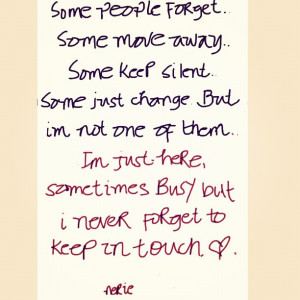 Some People Forget..
Some move away..
Some keep silent..
Some just change. But
im not one of them..
Im just here,
sometimes Busy but
i never forget to
keep in touch ♡.